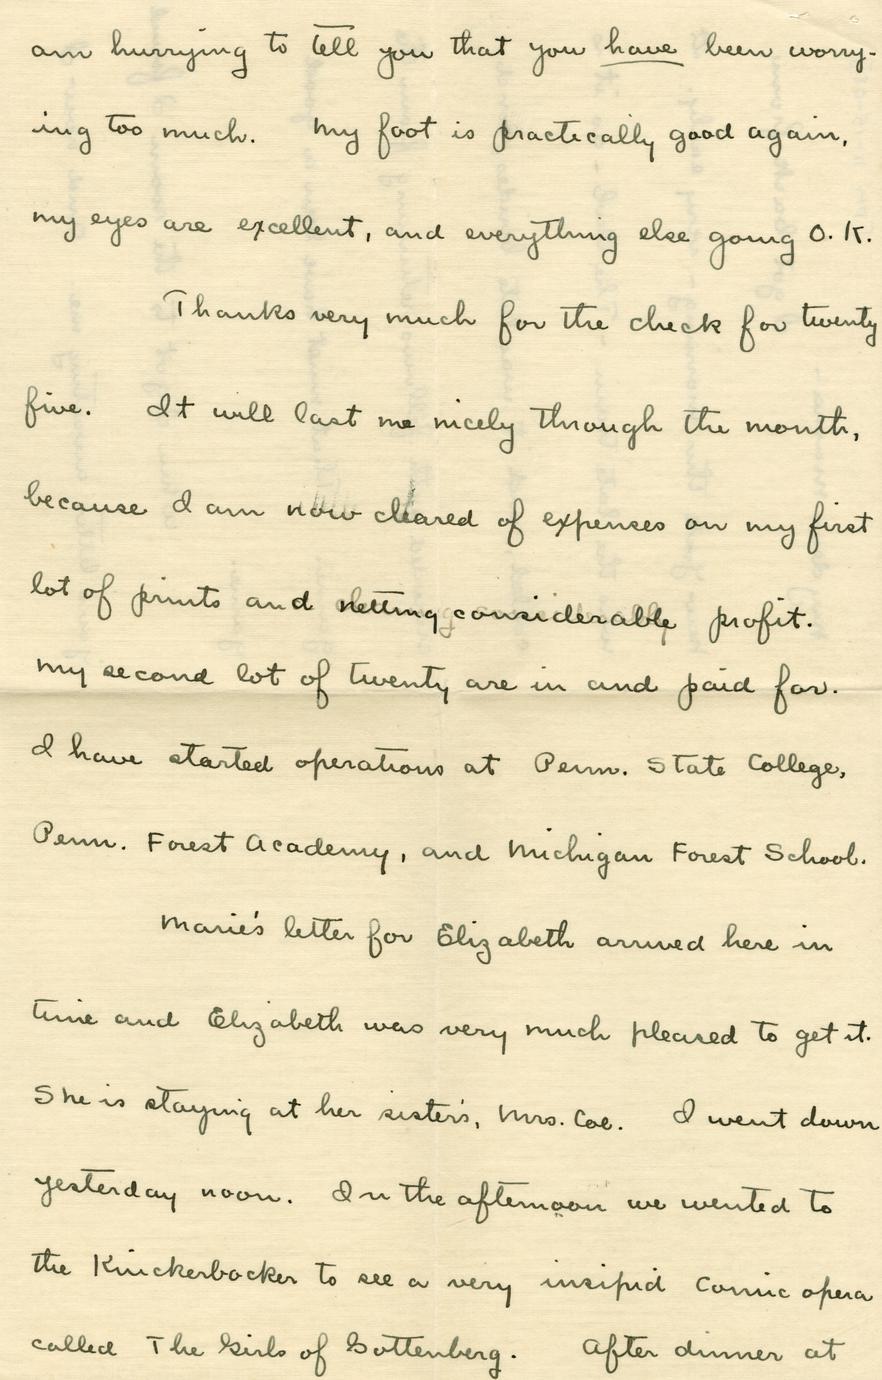 am hurrying to tell you that you have been worry-
ing too much. My foot is practically good again,
my eyes are excellent, and everything else going O.K.
Thanks very much for the check for twenty
five. It will last me nicely through the month,
because I am now cleared of expenses on my first
lot of prints and netting considerable profit.
My second lot of twenty are in and paid for.
I have started operations at Penn. State College,
Penn. Forest Academy, and Michigan Forest School.
Marie's letter for Elizabeth arrived here in
time and Elizabeth was very much pleased to get it.
She is staying at her sister's, Mrs. Coe. I went down
yesterday noon. In the afternoon we wented to
the Knickerbocker to see a very insipid comic opera
called The Girls of Gottenberg. After dinner at